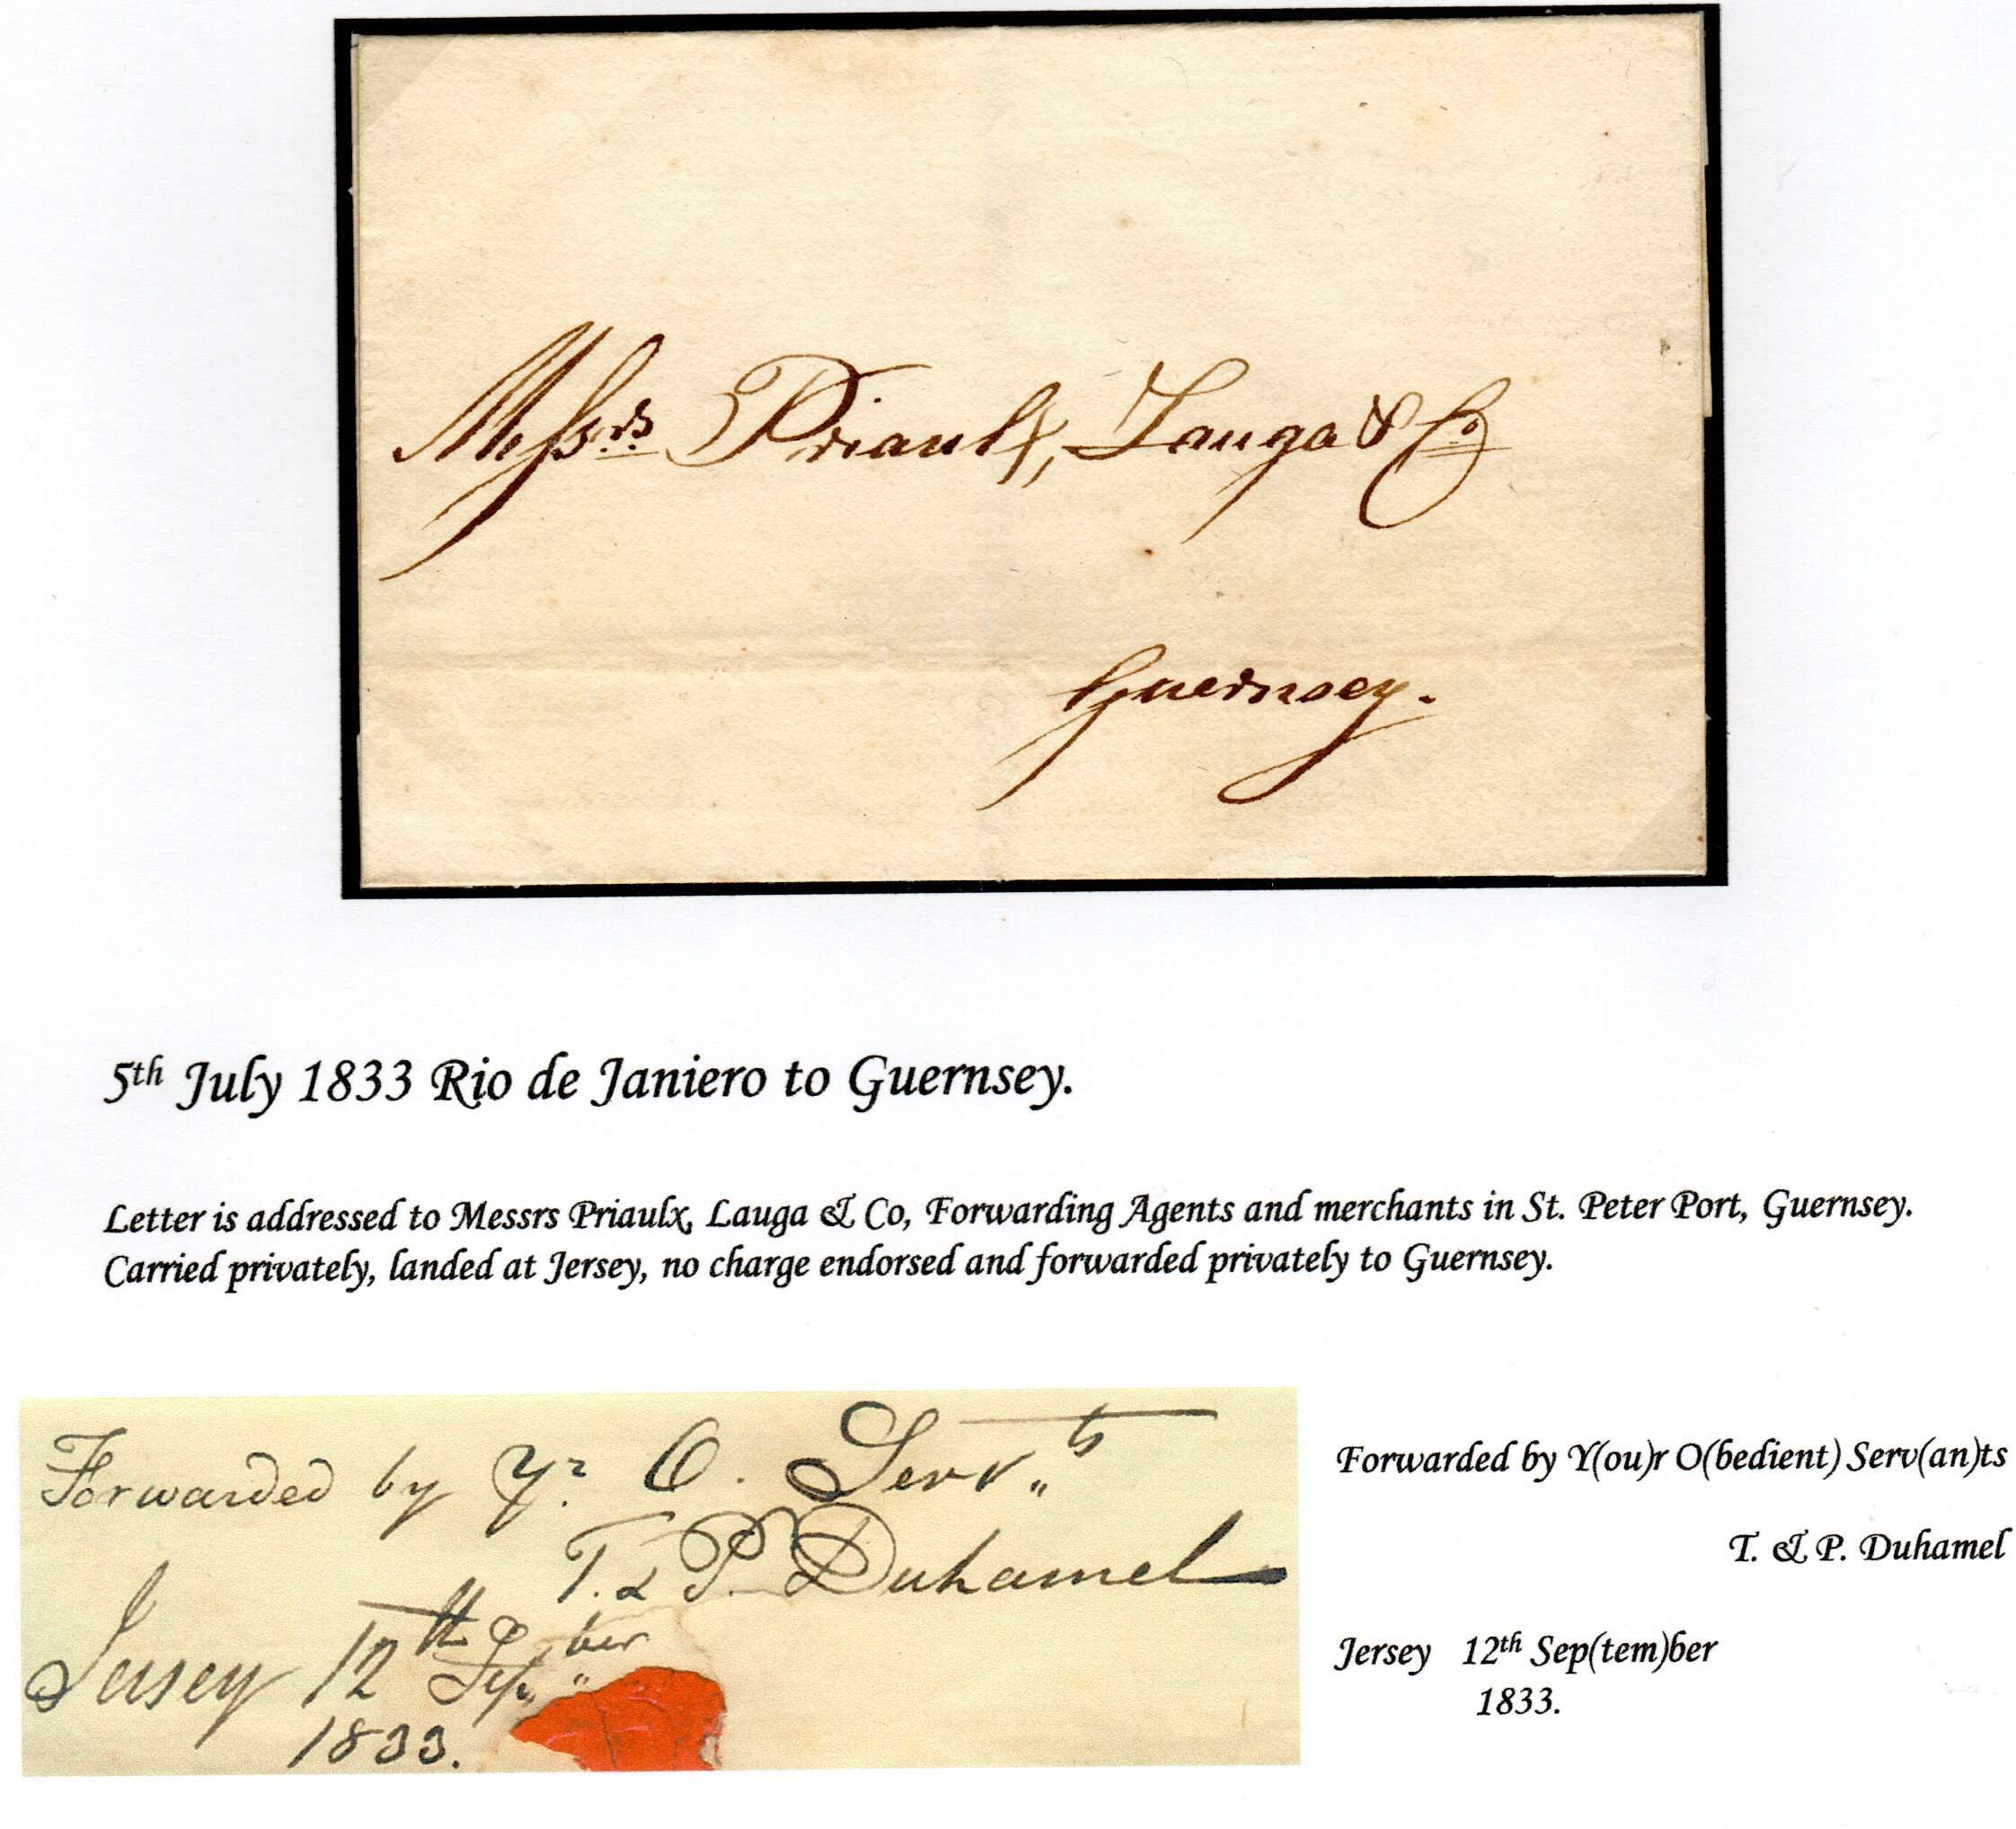 Messrs Priaulx, Lauga & Co
Guernsey.
5th July 1833 Rio de Janiero to Guernsey.
Letter is addressed to Messrs Priaulx, Lauga & Co, Forwarding Agents and merchants in St. Peter Port, Guernsey.
Carried privately, landed at Jersey, no charge endorsed and forwarded privately to Guernsey.
Forwarded by Yr. O. Servts
T. & P. Duhamel
Jersey 12th Sepber
1833.
Forwarded by Y(ou)r O(bedient) Serv(an)ts
T. & P. Duhamel
Jersey 12th Sep(tem)ber
1833.